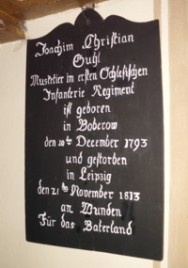 Joachim Christian
Guhl
Musketier im ersten Schlesischen
Infanterie Regiment
ist geboren
in Boberow
den 10ten December 1793
und gestorben
in Leipzig
den 21ten November 1813
am Wunden
Für das Vaterland